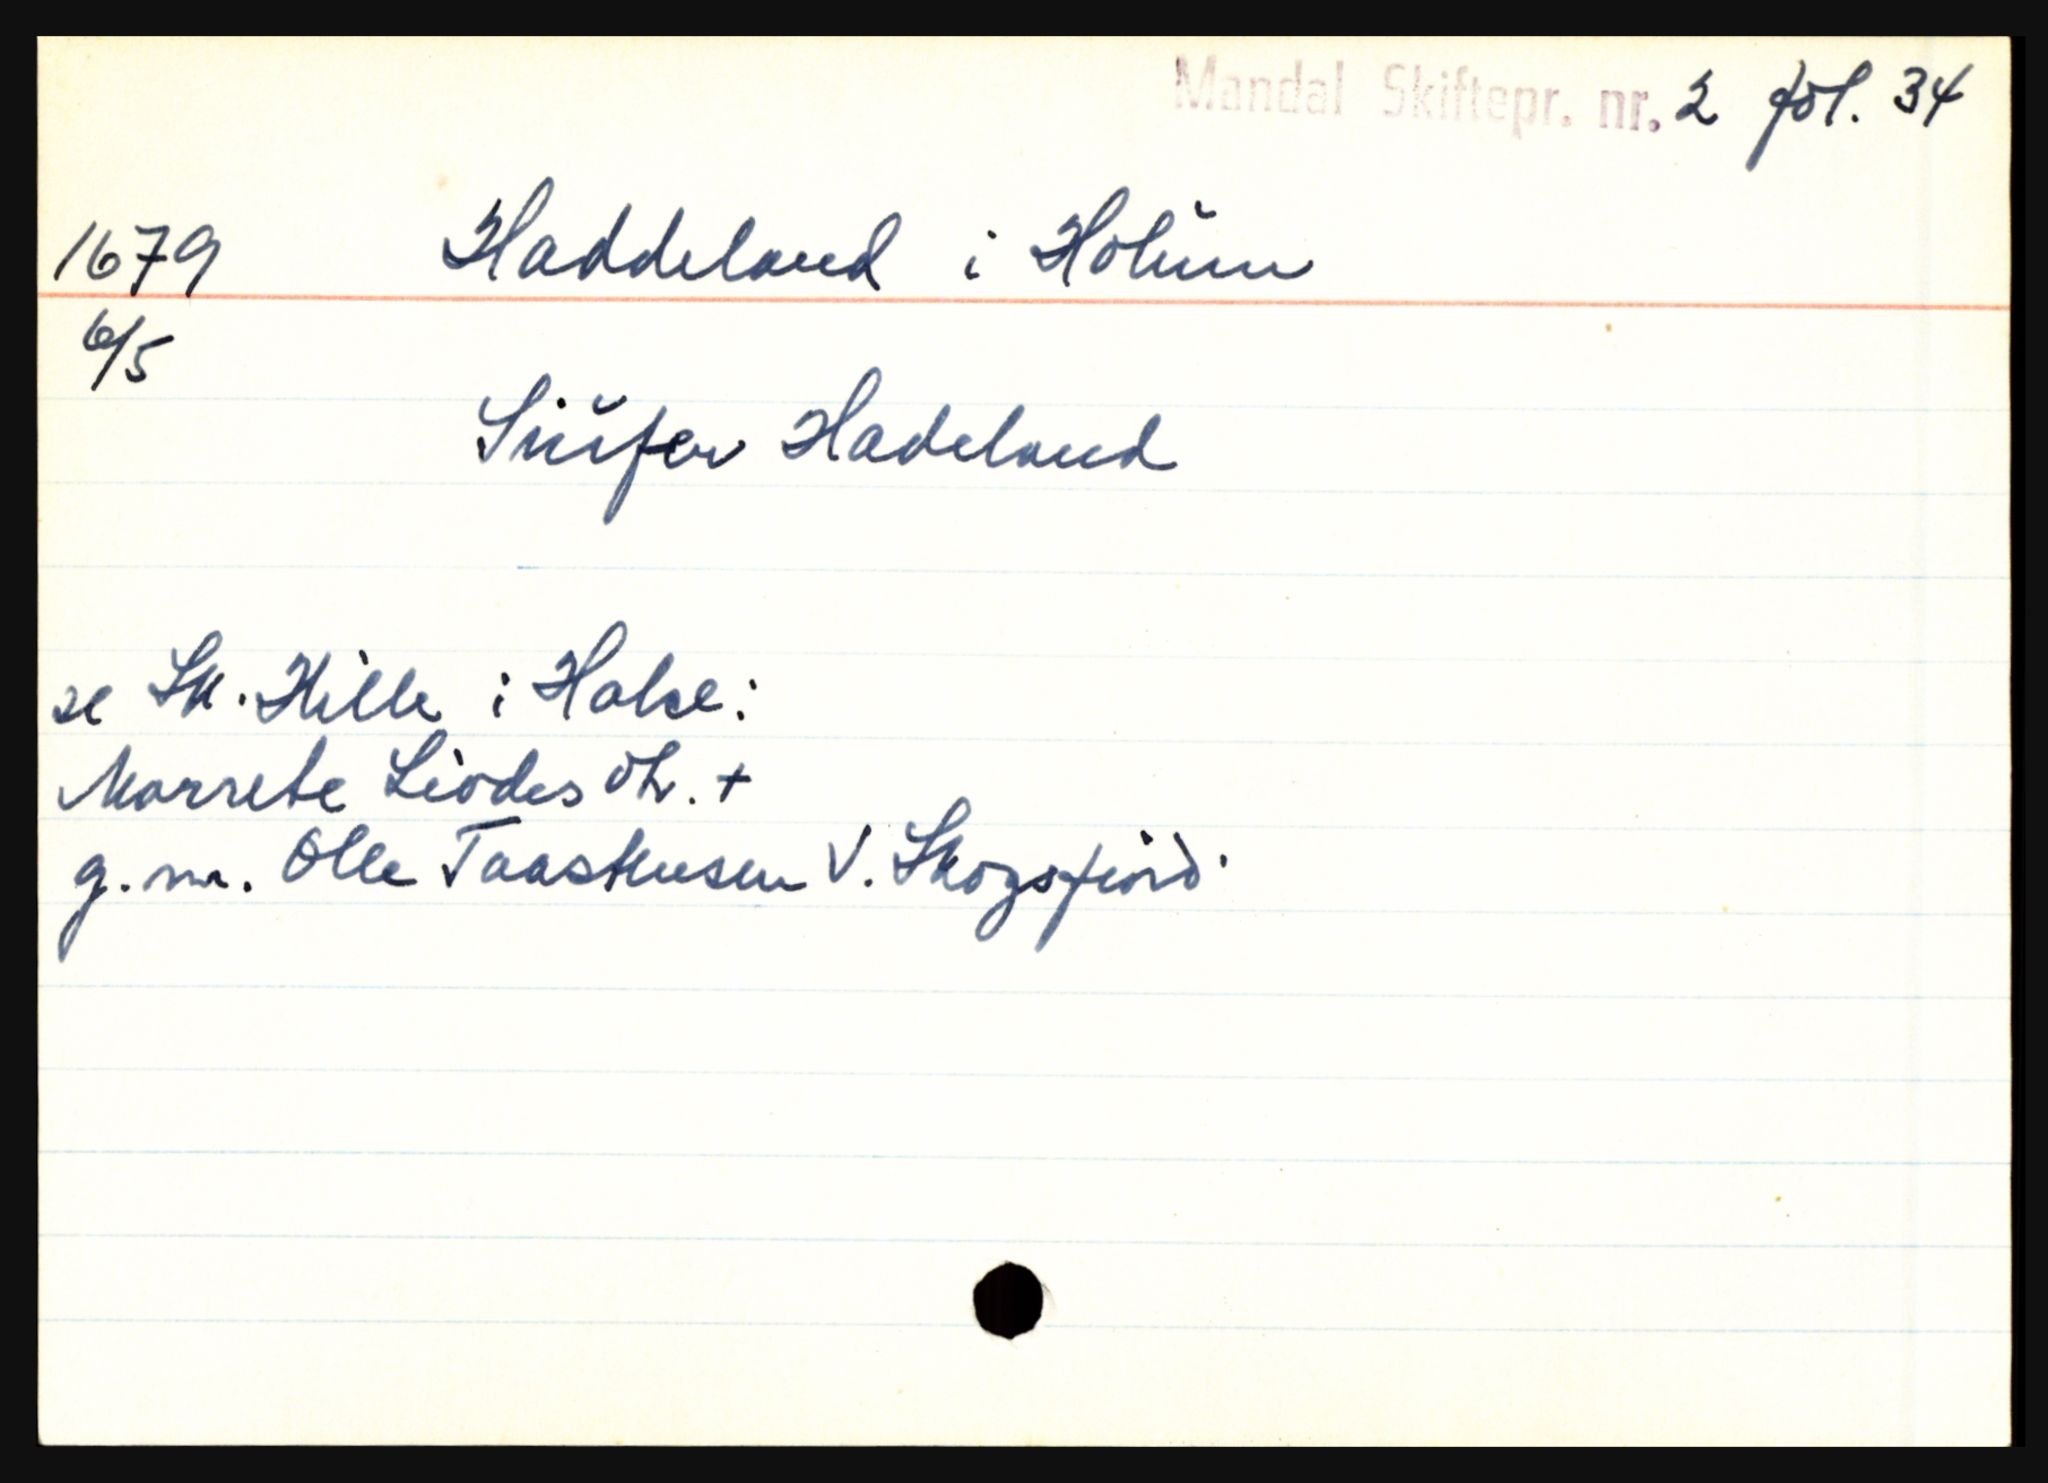 Mandal Skiftepr. nr. 2 fol. 34
1679 Haddeland i Holum
6/5
Siufer Hadeland
se Sk. Hille i Halse:
Marrete Liodes dtr. +
g. m. Olle Taaskusen V. Skogsfiord.